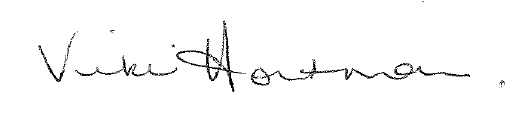 Vicki Hartman